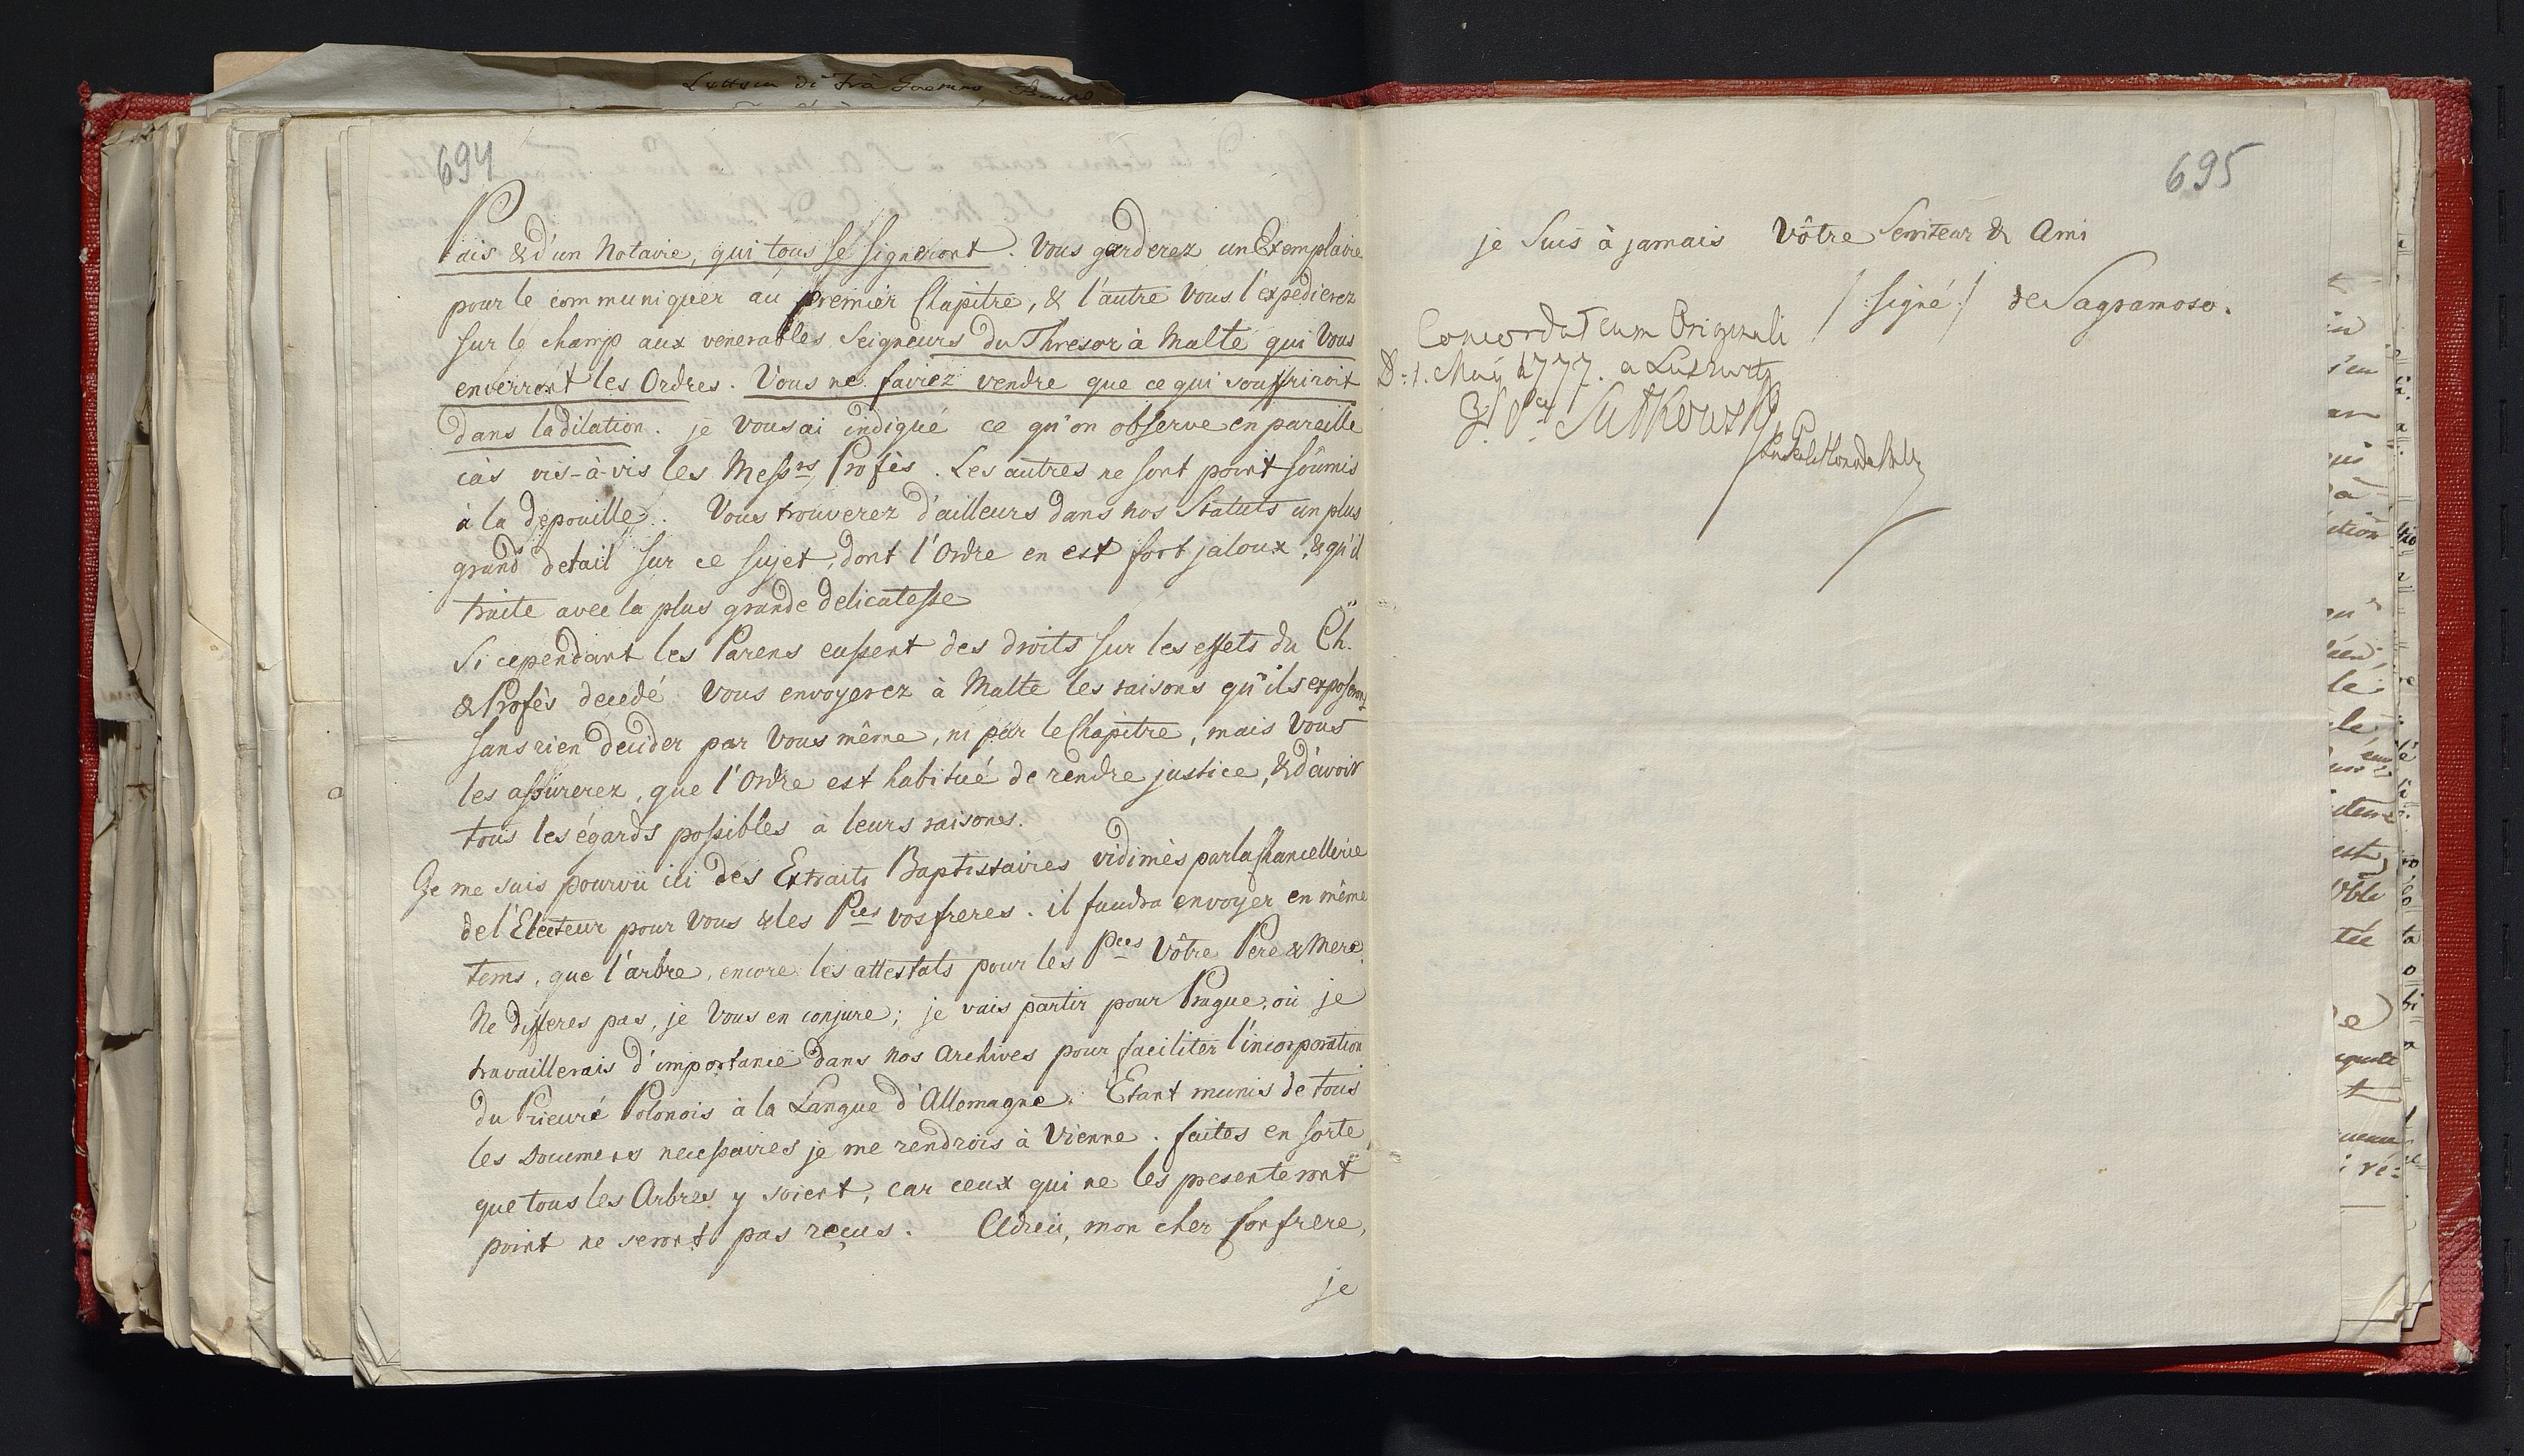 694
Païs & d'un Notaire, qui tous se signeront. Vous garderez un Exemplaire
pour le communiquer au premier Chapitre, & l'autre Vous l'expedierez
sur le champ aux venerables Seigneurs du Thresor à Malte qui Vous
enverront les Ordres. Vous ne fairez vendre que ce qui souffriroit
dans la dilation. je Vous ai indiqué ce qu'on observe en pareille
cas vis-à-vis les Mess.rs Profès. Les autres ne sont point soûmis
à la depouille. Vous trouverez d'ailleurs dans nos Statuts un plus
grand detail sur ce sujet, dont l'Ordre en est fort jaloux, & qu'il
traite avec la plus grande delicatesse
Si cependant les Parens eussent des droits sur les effets du Ch.
& Profès decedé Vous envoyerez à Malte les raisons qu'ils exposeront
sans rien decider par Vous même, ni par le Chapitre, mais Vous
les assürerez, que l'Ordre est habitué de rendre justice, & d'avoir
tous les égards possibles à leurs raisones.
Je me suis pourvü ici des Extraits Baptistaires vidimès par la Chancellerie
de l'Electeur pour Vous & les P.ces vos freres. il faudra envoyer en même
tems, que l'arbre, encore les attestats pour les P.ces Vôtre Pere & Mere.
Ne differes pas, je Vous en conjure; je vais partir pour Prague, où je
travaillerais d'importance dans nos Archives pour faciliter l'incorporation
du Prieuré Polonois à la Langue d'Allemagne. Etant munis de tous
les Documens necessaires je me rendrois à Vienne. faites en sorte,
que tous les Arbres y soient, car ceux qui ne les presenteront
point ne seront pas reçus. Adieu, mon cher Confrere,
je
695
je suis à jamais Vôtre Serviteur & Ami
/:signé:/ de Sagramoso.
Concordat cum Originali
D: 1. May 1777. a
Sulkowski